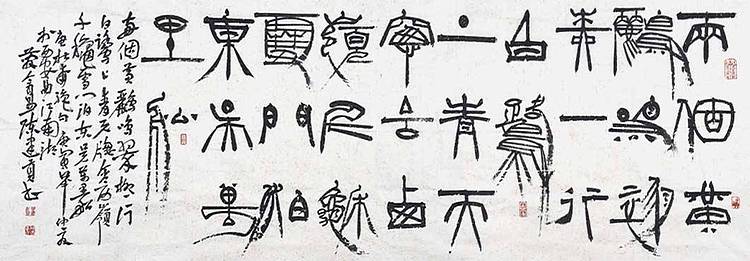 兩個黃
鸝鳴翠
柳一行
白鷺
上青天
窗含西
嶺千秋
雪門泊
東吳萬
里船
兩個黃鸝鳴翠柳一行
白鷺上青天窗含西嶺
千秋雪門泊東吳萬里船
杜甫絕句庚寅年仲